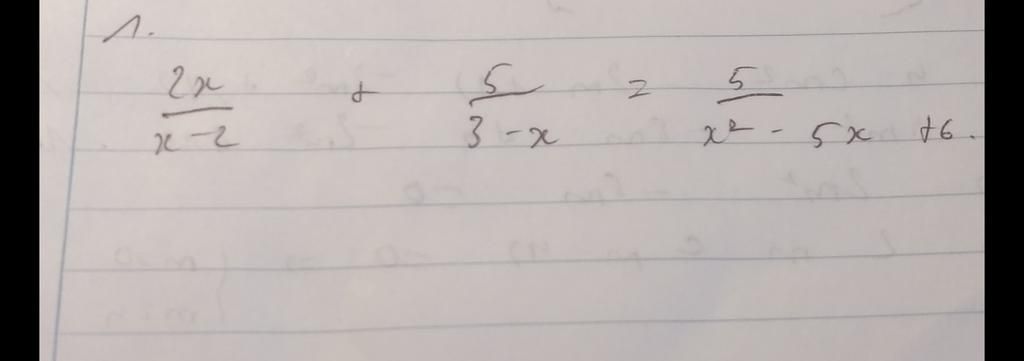 1.
2x/(x-2) + 5/(3-x) = 5/(x² - 5x + 6).